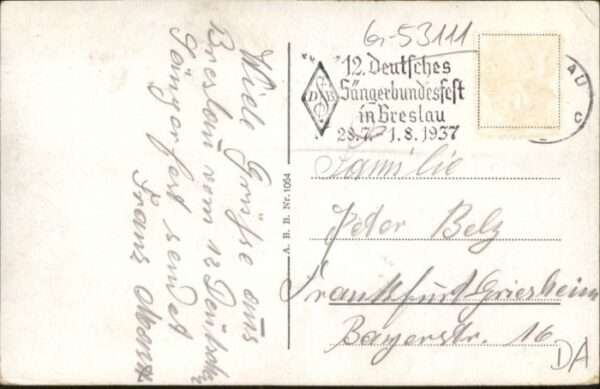 Viele Grüße aus
Breslau vom 12 Deutschen
Sängerfest sendet
Franz
A. B. B. Nr. 1054
Gr-53111
12. Deutsches
Sängerbundesfest
in Breslau
28.7.-1.8.1937
DSB
AU
c
Familie
Peter Belz
Frankfurt Griesheim
Bayerstr. 16
DA